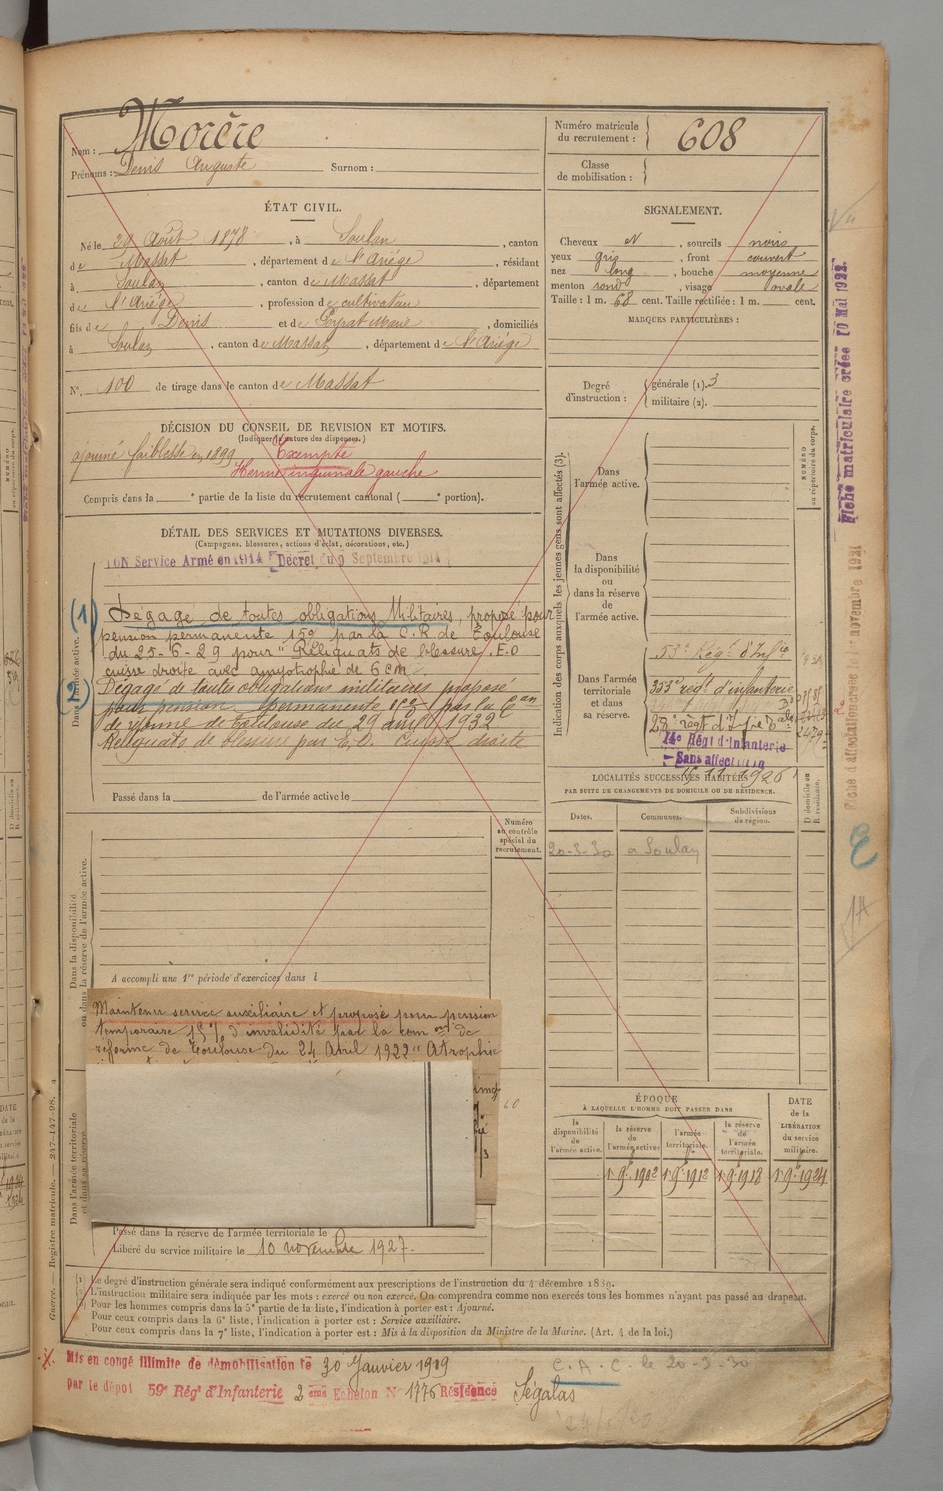 Nom : Morère
Prénoms : Denis Auguste Surnom :
Numéro matricule du recrutement : 608
Classe de mobilisation :
ÉTAT CIVIL.
Né le 29 Août 1878, à Soulan, canton
de Massat, département de l'Ariège, résidant
à Soulan, canton de Massat, département
de l'Ariège, profession de cultivateur
fils de Denis et de Peyrat Marie, domiciliés
à Soulan, canton de Massat, département de l'Ariège
N° 100 de tirage dans le canton de Massat
SIGNALEMENT.
Cheveux N, sourcils noirs
yeux gris, front couvert
nez long, bouche moyenne
menton rond, visage ovale
Taille : 1 m. 68 cent. Taille rectifiée : 1 m. cent.
MARQUES PARTICULIÈRES :
Degré d'instruction : générale (1). 3
militaire (2).
DÉCISION DU CONSEIL DE REVISION ET MOTIFS.
(Indiquer la nature des dispenses.)
ajourné faiblesse en 1899 Exempté
Hernie inguinale gauche
Compris dans la e partie de la liste du recrutement cantonal ( e portion).
DÉTAIL DES SERVICES ET MUTATIONS DIVERSES.
(Campagnes, blessures, actions d'éclat, décorations, etc.)
Service Armé en 1914 Décret du 9 Septembre 1914
(1) Dégagé de toutes obligations Militaires, proposé pour
pension permanente 15% par la C.R. de Toulouse
du 25-6-29 pour "Reliquats de blessure E.O
cuisse droite avec amyotrophie de 6 cm
(2) Dégagé de toutes obligations militaires proposé
pour pension permanente par la
de réforme de Toulouse du 29 avril 1932
Reliquats de blessure par E.O. Cuisse droite
Passé dans la de l'armée active le
Dans l'armée active.
Numéro au contrôle spécial du recrutement.
Dans la disponibilité ou dans la réserve de l'armée active.
A accompli une 1re période d'exercices dans l
Maintenu service auxiliaire et proposé pour pension
temporaire 15% d'invalidité par la com on de
réforme de Toulouse du 24 Avril 1922 "Atrophie
60
Dans l'armée territoriale et dans sa réserve.
Passé dans la réserve de l'armée territoriale le
Libéré du service militaire le 10 novembre 1927.
Indication des corps auxquels les jeunes gens sont affectés (3).
Dans l'armée active.
Dans la disponibilité ou dans la réserve de l'armée active.
Dans l'armée territoriale et dans sa réserve.
NUMÉRO au répertoire du corps.
353e régt d'infanterie
14e Régt d'Infanterie
Sans affectation
LOCALITÉS SUCCESSIVES HABITÉES
PAR SUITE DE CHANGEMENTS DE DOMICILE OU DE RÉSIDENCE.
Dates. Communes. Subdivisions de région. D domicile ou R résidence.
20-3-30 a Soulan
ÉPOQUE
À LAQUELLE L'HOMME DOIT PASSER DANS
la disponibilité de l'armée active. la réserve de l'armée active. l'armée territoriale. la réserve de l'armée territoriale.
DATE de la LIBÉRATION du service militaire.
1er 9bre 1902 1er 9bre 1912 1er 9bre 1918 1er 9bre 1924
(1) Le degré d'instruction générale sera indiqué conformément aux prescriptions de l'instruction du 4 décembre 1889.
(2) L'instruction militaire sera indiquée par les mots : exercé ou non exercé. On comprendra comme non exercés tous les hommes n'ayant pas passé au drapeau.
(3) Pour les hommes compris dans la 5e partie de la liste, l'indication à porter est : Ajourné.
Pour ceux compris dans la 6e liste, l'indication à porter est : Service auxiliaire.
Pour ceux compris dans la 7e liste, l'indication à porter est : Mis à la disposition du Ministre de la Marine. (Art. 4 de la loi.)
Guerre. — Registre matricule. — 247-147-98.
Mis en congé illimité de démobilisation le 30 Janvier 1919
par le dépot 59e Régt d'Infanterie 2 ème Echelon N° 1776 Résidence Ségalas
C.A.C. le 20-3-30
Fiche matriculaire créée 10 Mai 1922.
Fiche d'affectation créée le 1er novembre 1921